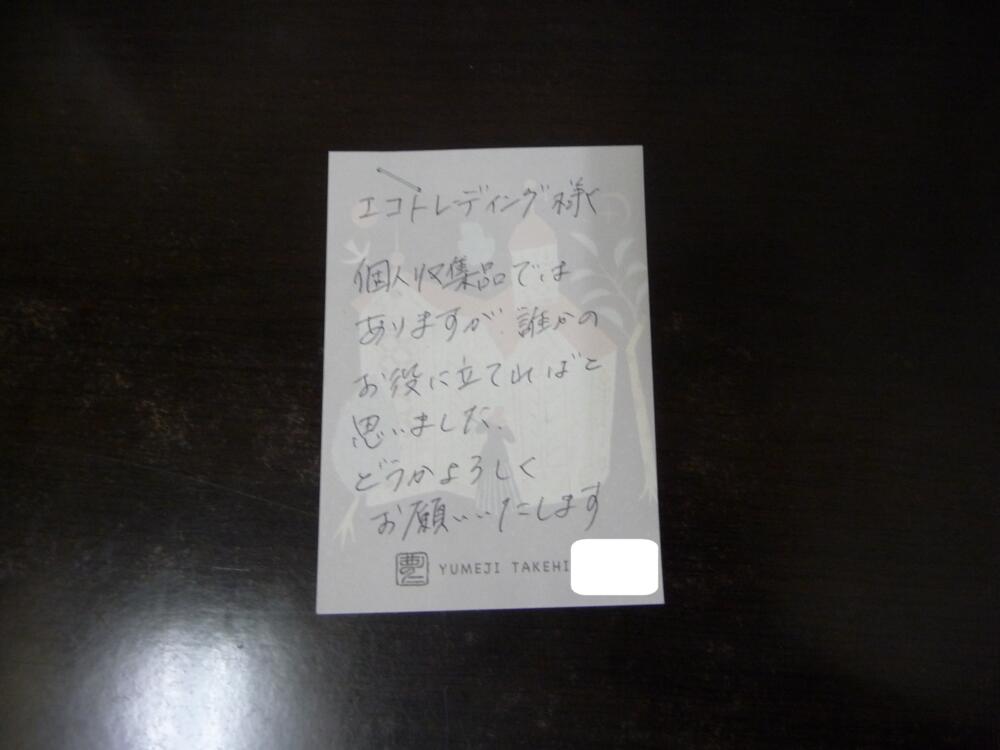 エコトレーディング様
個人収集品では
ありますが、誰かの
お役に立てればと
思いました。
どうかよろしく
お願いいたします
YUMEJI TAKEHI